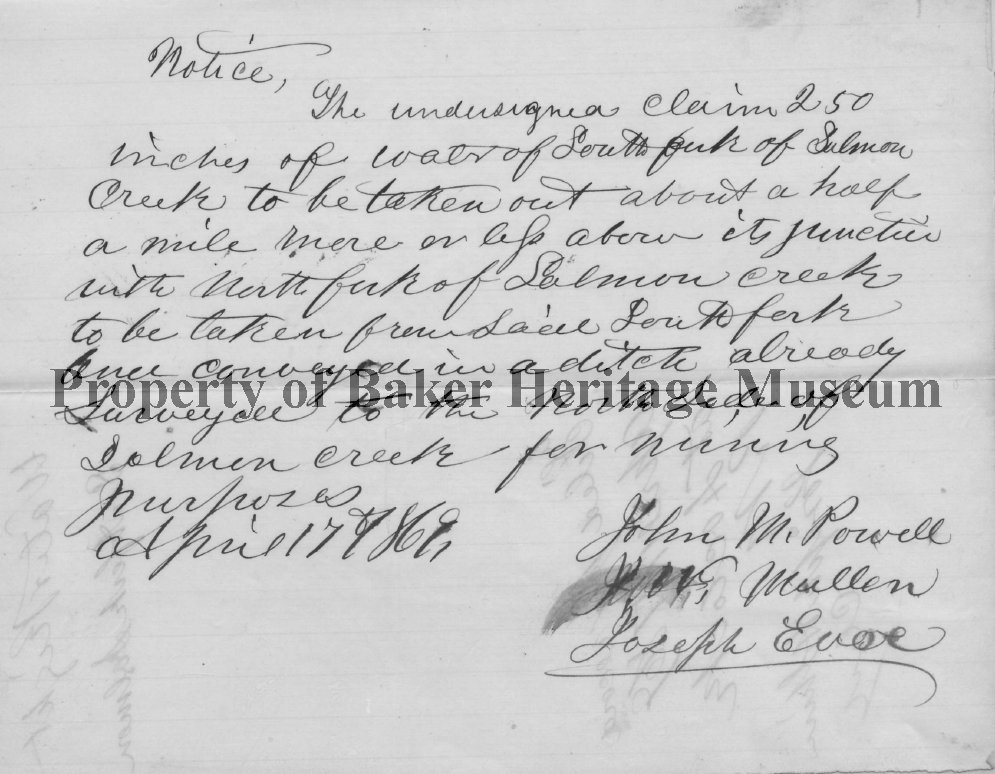 Notice,
The undersigned claim 250
inches of water of South fork of Salmon
Creek to be taken out about a half
a mile more or less above its junction
with North fork of Salmon creek
to be taken from said South fork
and conveyed in a ditch already
Property of Baker Heritage Museum
Surveyed to the North side of
Salmon creek for mining
purposes
April 17th 1869,
John M. Powell
W, Mullen
Joseph Evoe